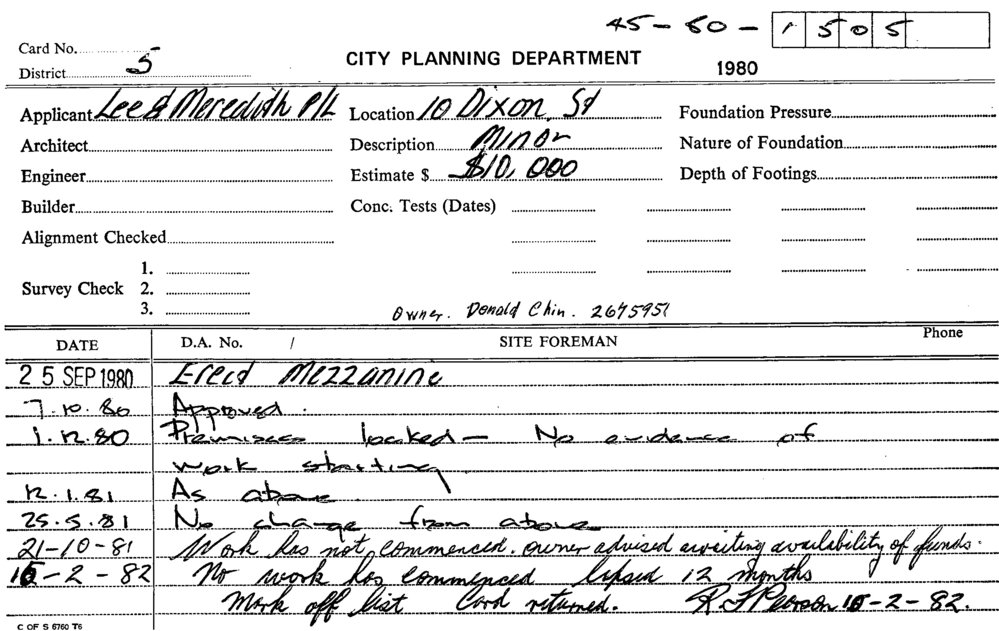 45-80-1505
Card No.
District 5
CITY PLANNING DEPARTMENT
1980
Applicant Lee & Meredith P/L Location 10 Dixon St Foundation Pressure
Architect Description Minor Nature of Foundation
Engineer Estimate $ $10,000 Depth of Footings
Builder Conc. Tests (Dates)
Alignment Checked
1.
Survey Check 2.
3.
Owner. Donald Chin. 2675951
DATE D.A. No. / SITE FOREMAN Phone
25 SEP 1980 Erect Mezzanine
7.10.80 Approved.
1.12.80 Premises locked - No evidence of
work starting
12.1.81 As above
25.5.81 No change from above
21-10-81 Work has not commenced. owner advised awaiting availability of funds.
-2-82 No work has commenced lapsed 12 months
Mark off list Card returned. -2-82.
C OF S 6760 T6